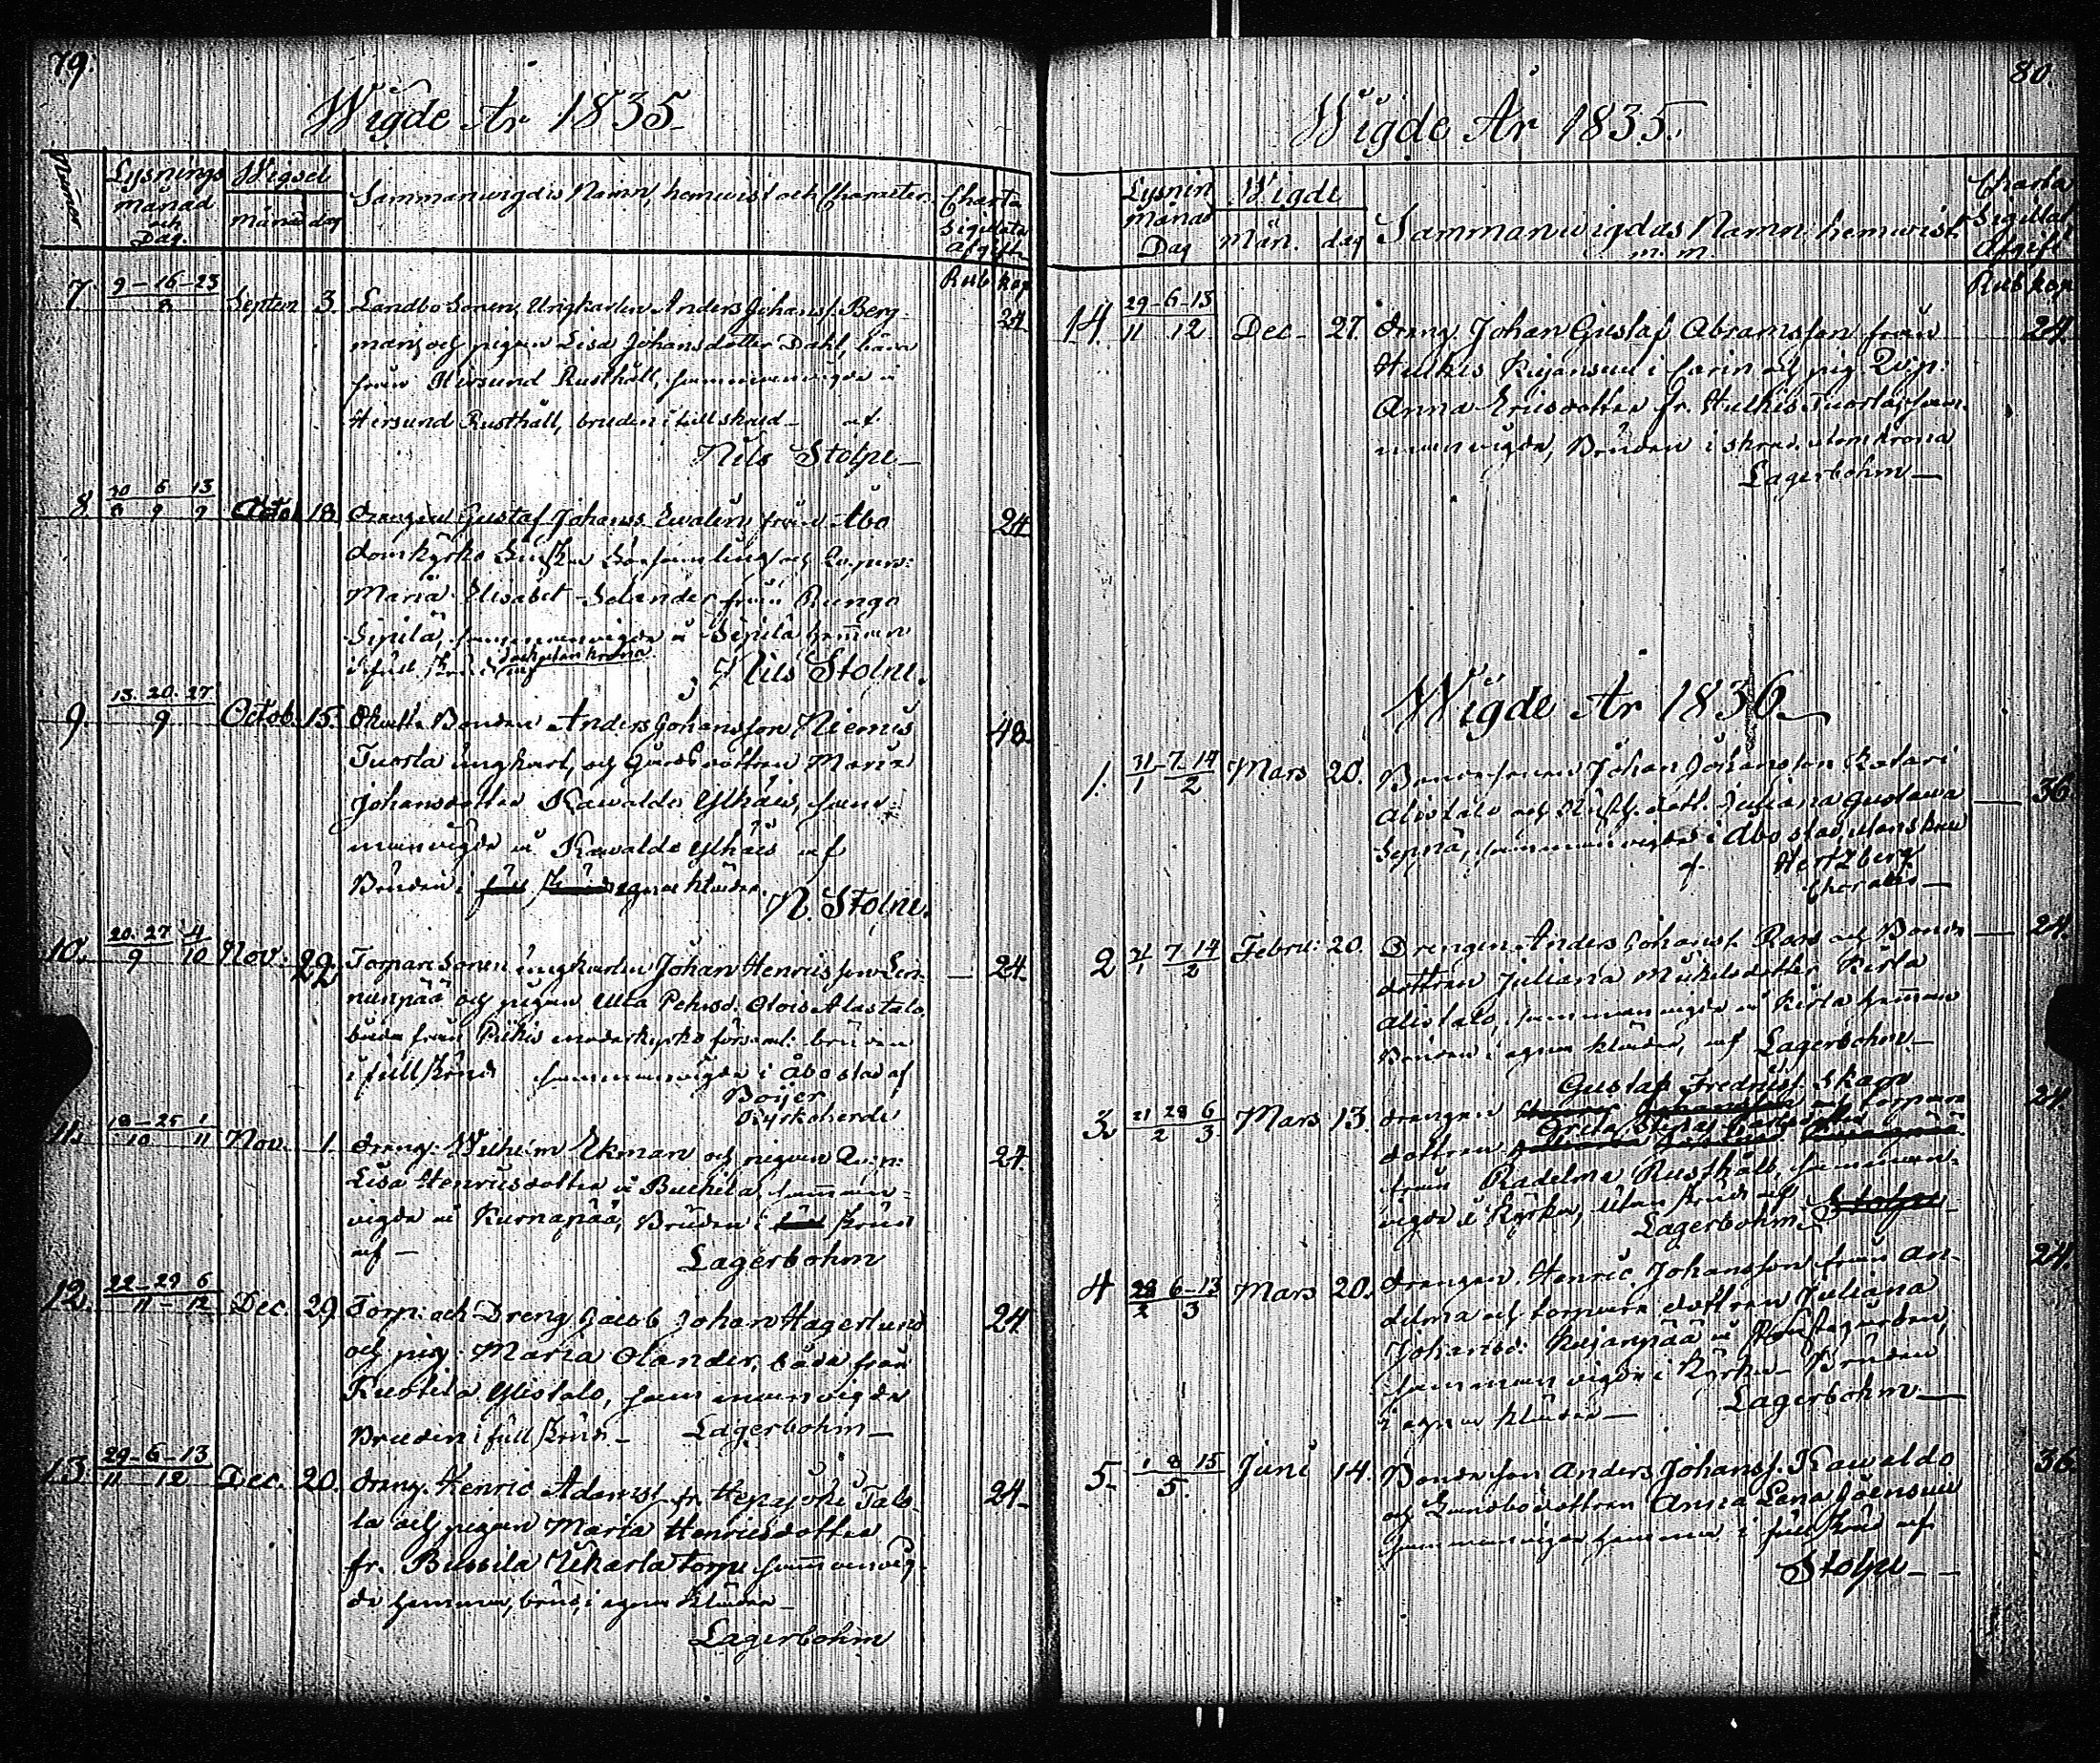 79.
Wigde År 1835
Numer
Lysnings månad och Dag.
Wigsel
månad dag
Sammanvigdes Namn, hemvist och Charater.
Charta Sigillata afgift
Rub kop
7. 9-16-23 / 8 Septem 3. Landbo Sonen, Ungkarlen Anders Johanss. Berg- 24.
man, och pigan Lisa Johansdotter Dahl, båda
från Hirsund Rusthåll, sammanvigda å
Hirsund Rusthåll, bruden i full skrud af
Nils Stolpe
8 30 6 13 / 8 9 9 Octob 18 drengen Gustaf Johanss. Ewalin, från Åbo 24
domkyrko församling och
Maria Elisabet Selander från Runga
Sipilä, sammanvigda å Sipilä hemman
i full skrud
Nils Stolpe.
9. 13. 20. 27 / 9 Octob. 15. Bonden Anders Johansson Niemis 48.
Tuorla ungkarl, och Gårds dottren Maria
Johansdotter Kawalde Ylhäis, sam-
manvigda å Kawalde Ylhäis af
Bruden i full skrud egna kläder.
N. Stolpe.
10. 20. 27 4 / 9 10 Nov. 29 Torpare Sonen ungkarlen Johan Henricsson 24.
och pigan Ulla Pehrsd. Olois Alastalo,
båda från Pikis moderkyrko församl: bruden
i full skrud sammanvigda i Åbo stad af
Boijer
Kyrkoherde
11. 18-25 1 / 10 11 Nov. 1. dreng. Wilhelm Ekman och pigan 24.
Lisa Henricsdotter å Buchila, samman-
vigda å Kurnapää, Bruden i full skrud
af —
Lagerbohm
12. 22-29 6 / 11-12 Dec. 29. Torp: och Dreng Jacob Johan Hagerlund 24
och pig. Maria Olander, båda från
Kuotila Ylistalo, sammanvigda
Bruden i full skrud — Lagerbohm —
13. 29-6-13 / 11 12 Dec. 20. dreng. Henric Adamss. fr. Hepojoki 24-
och pigan Maria Henricsdotter
fr. Bussila torp sammanvig-
de hemma, brud. i egna kläder —
Lagerbohm
80.
Wigde År 1835.
Lysnin månad Dag
Wigde
Mån. dag
Sammanwigdas Namn hemvist
m. m.
Charta Sigillat Afgift
Rub kop
14. 29-6-13 / 11 12 Dec- 27. dreng Johan Gustaf Abramsson från 24.
Hulkis Kujansuu i Carin och pig.
Anna Ericsdotter fr. Hulkis Tuorla, sam-
manvigda, Bruden i skrud utom krona
Lagerbohm —
Wigde År 1836.
1. 31-7-14 / 1 2 Mars 20. Bondesonen Johan Johansson 36.
Alistalo och Rusth. dott. Juliana Gustava
Seppä, sammanvigda i Åbo stad, utan skrud
af Hertzberg
2 31 7 14 / 1 2 Febru: 20. Drengen Anders Johanss. och Bonde 24.
dottren Juliana Mickelsdotter Kirla
Alistalo, sammanvigda å Kirla hemman
Bruden i egna kläder, af Lagerbohm —
Gustaf Fredricss. Skarp
3. 21 28 6 / 2 3 Mars 13. drengen och torpare 24.
Greta Stina
dottren
från Radelma Rusthåll, samman-
vigda i Kyrka, utan skrud af Stolpe
Lagerbohm
4 28 6-13 / 2 3 Mars 20. drengen Henric Johansson från 24.
och torpare dottren Juliana
Johansd: Kujanpää å
sammanvigda i Kyrka — Bruden
i egna kläder — Lagerbohm —
5. 1 8 15 / 5. Juni 14. Bondeson Anders Johanss. Kawaldo 36.
och Landbodottren Anna Lena Joensuu
sammanvigda hemma i full skrud af
Stolpe — —